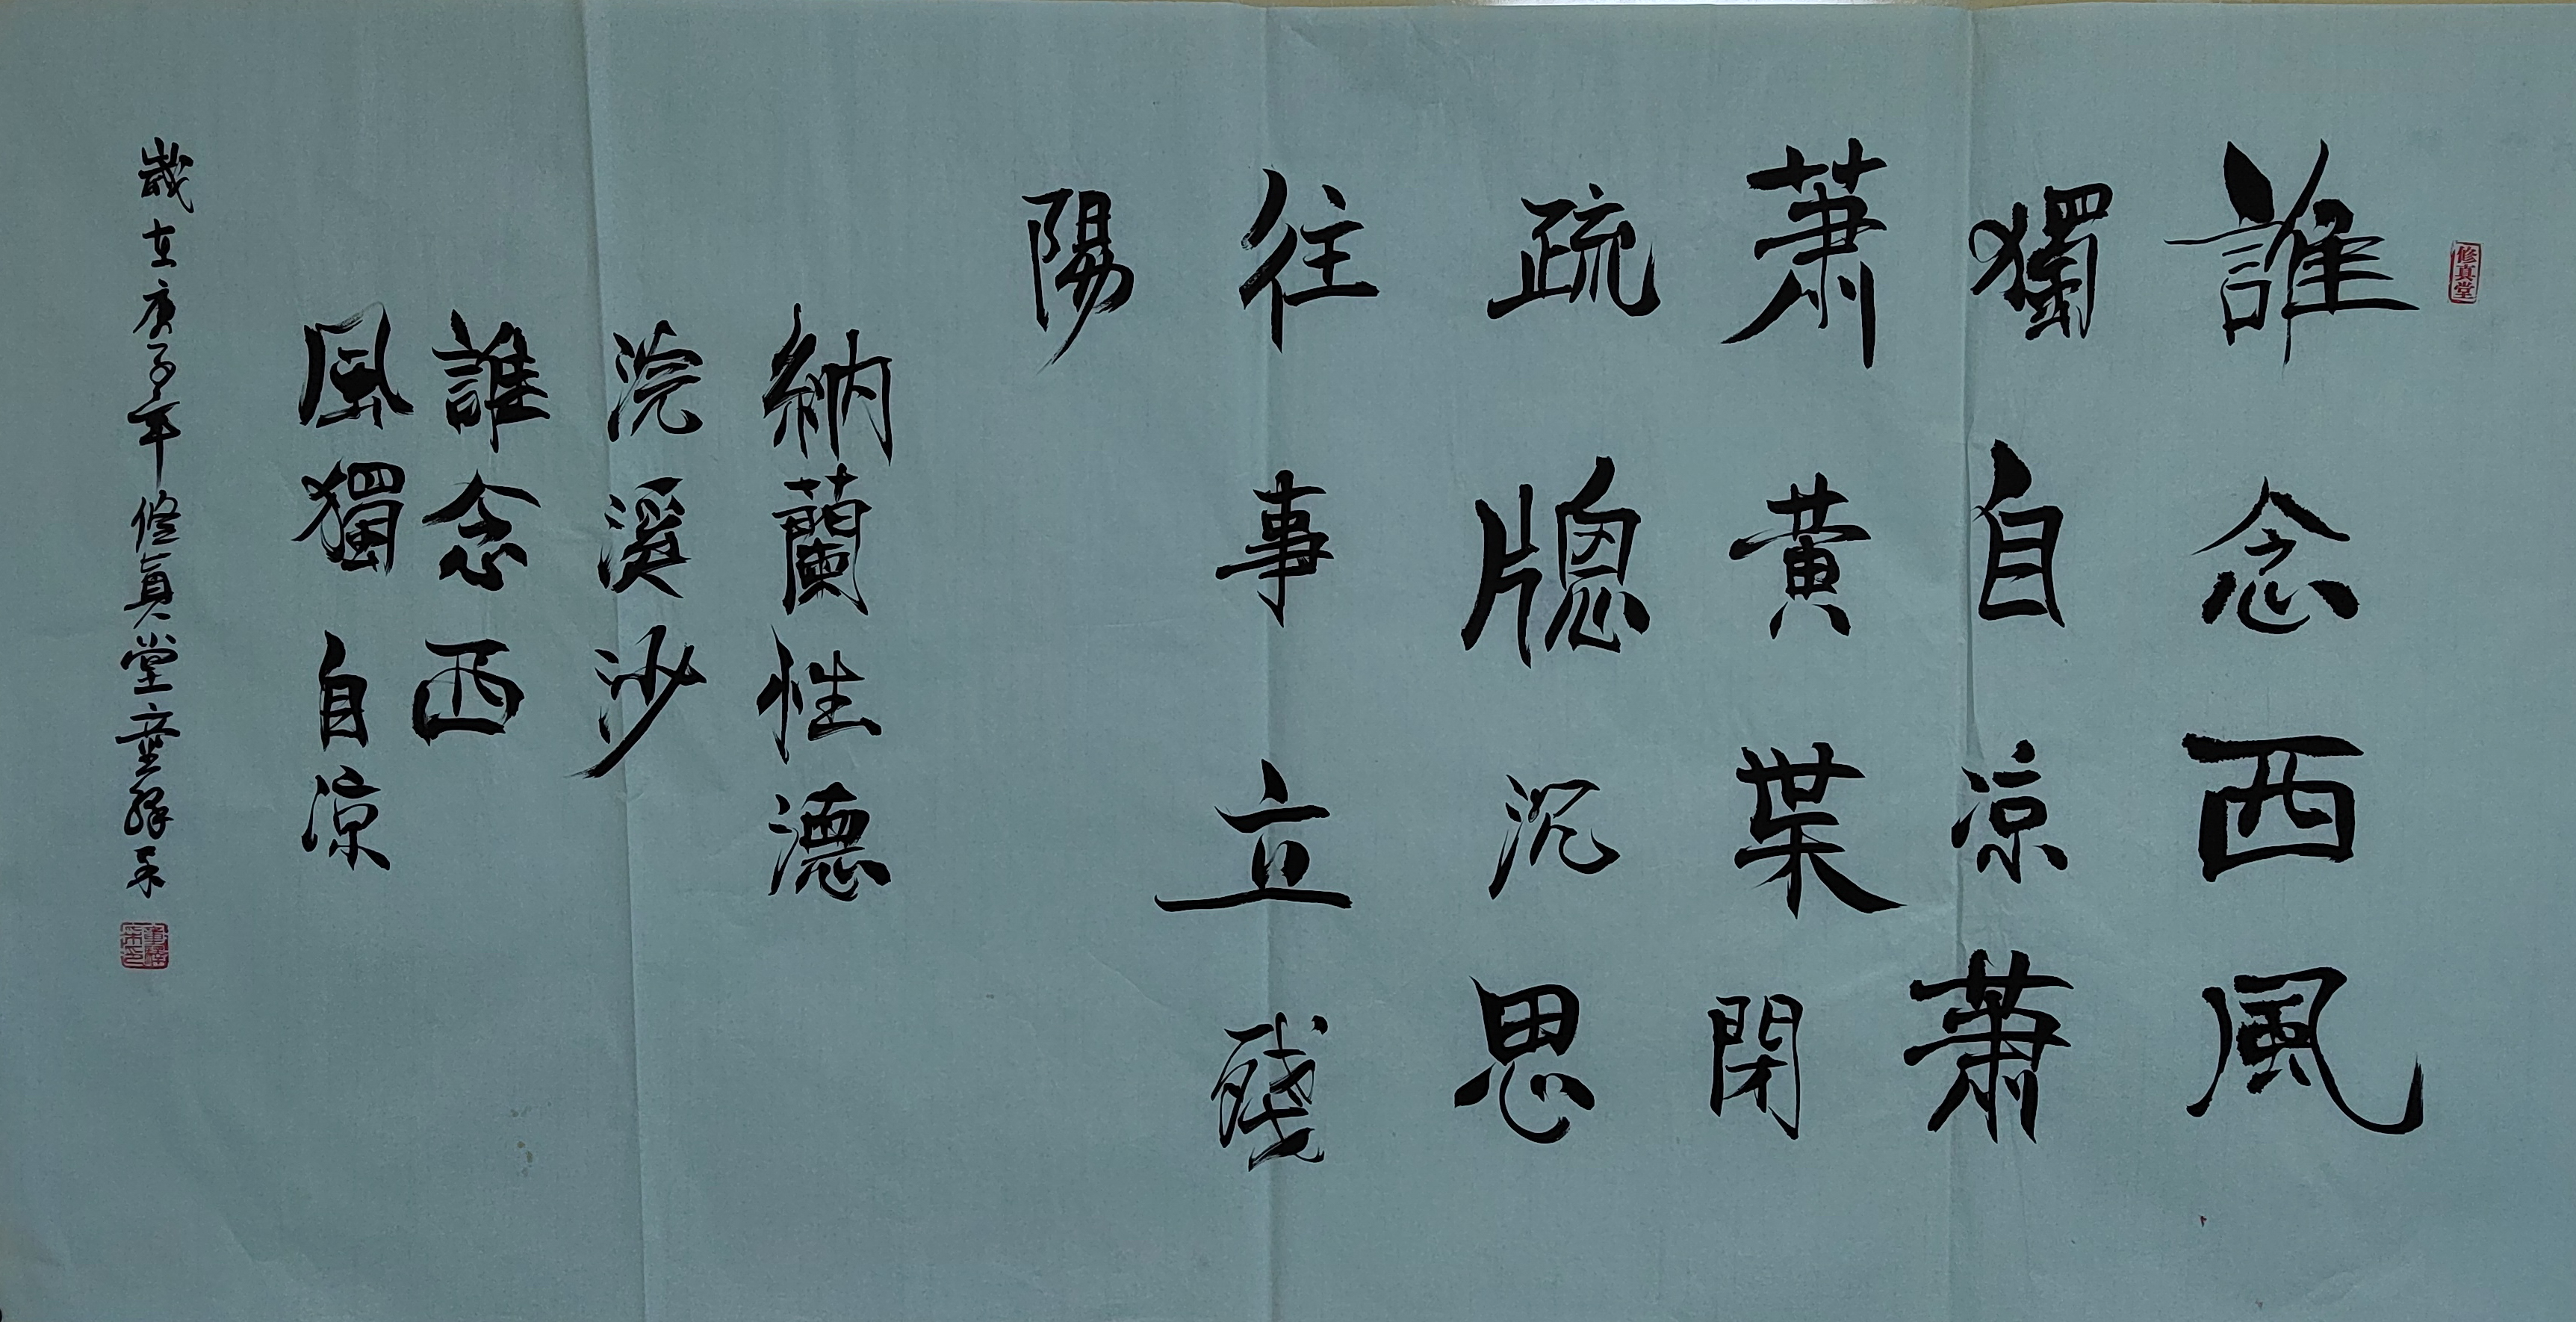 修真堂
誰念西風
獨自凉蕭
蕭黃葉閉
疏牕沉思
往事立殘
陽
納蘭性德
浣溪沙
誰念西
風獨自凉
歲在庚子年修真堂童